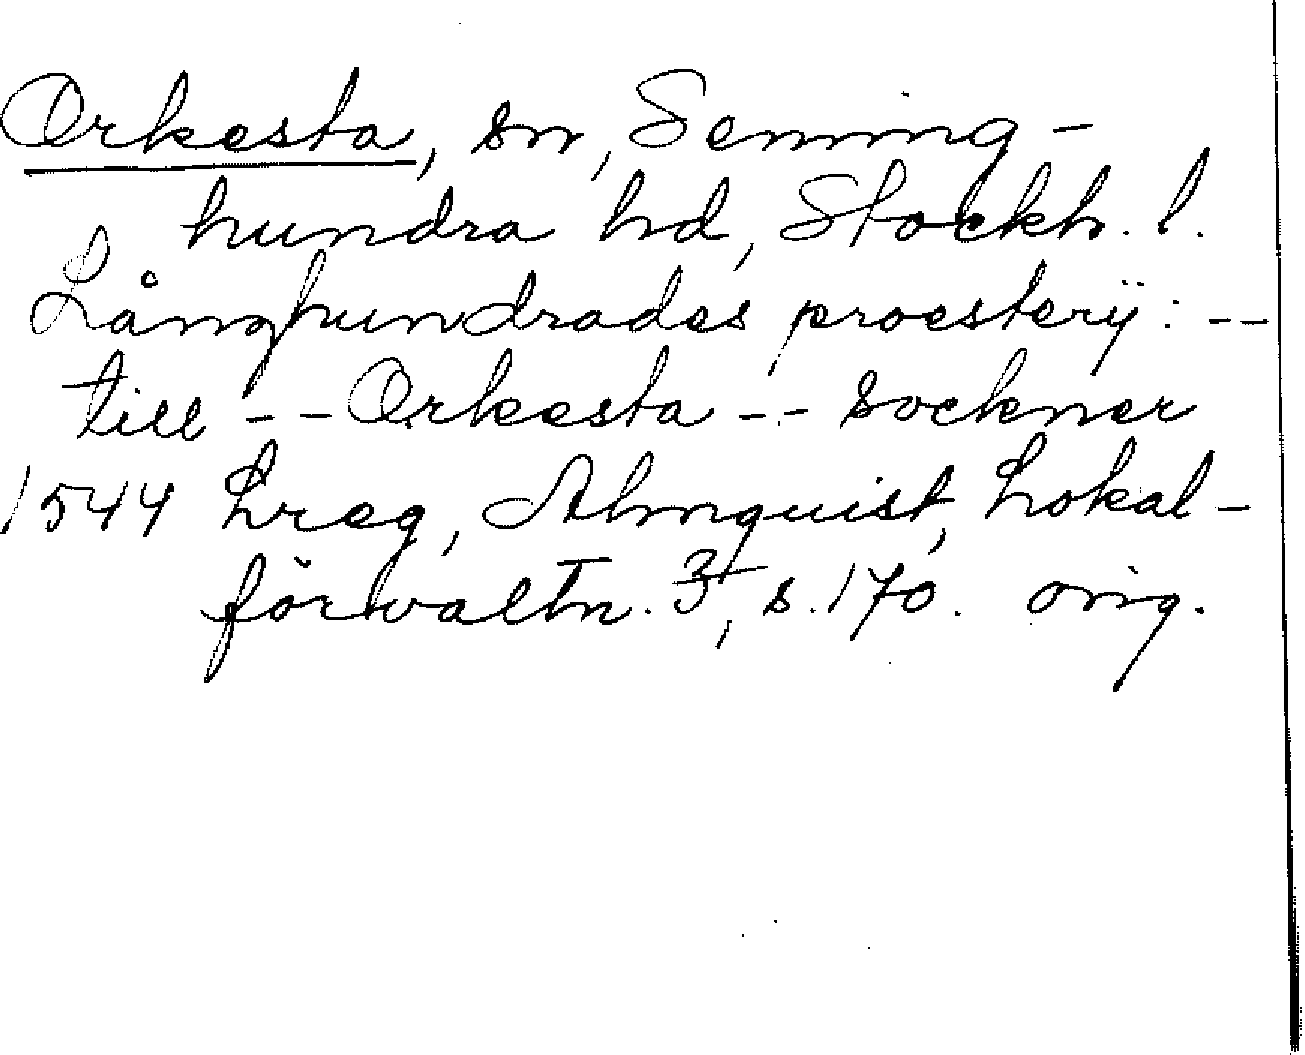 Orkesta, sn, Seming-
hundra hd, Stockh. l.
Långhundrades proesterij: --
till -- Orkesta -- sockner
1544 Lreg, Almquist, Lokal-
förvaltn. 3, s. 170. orig.